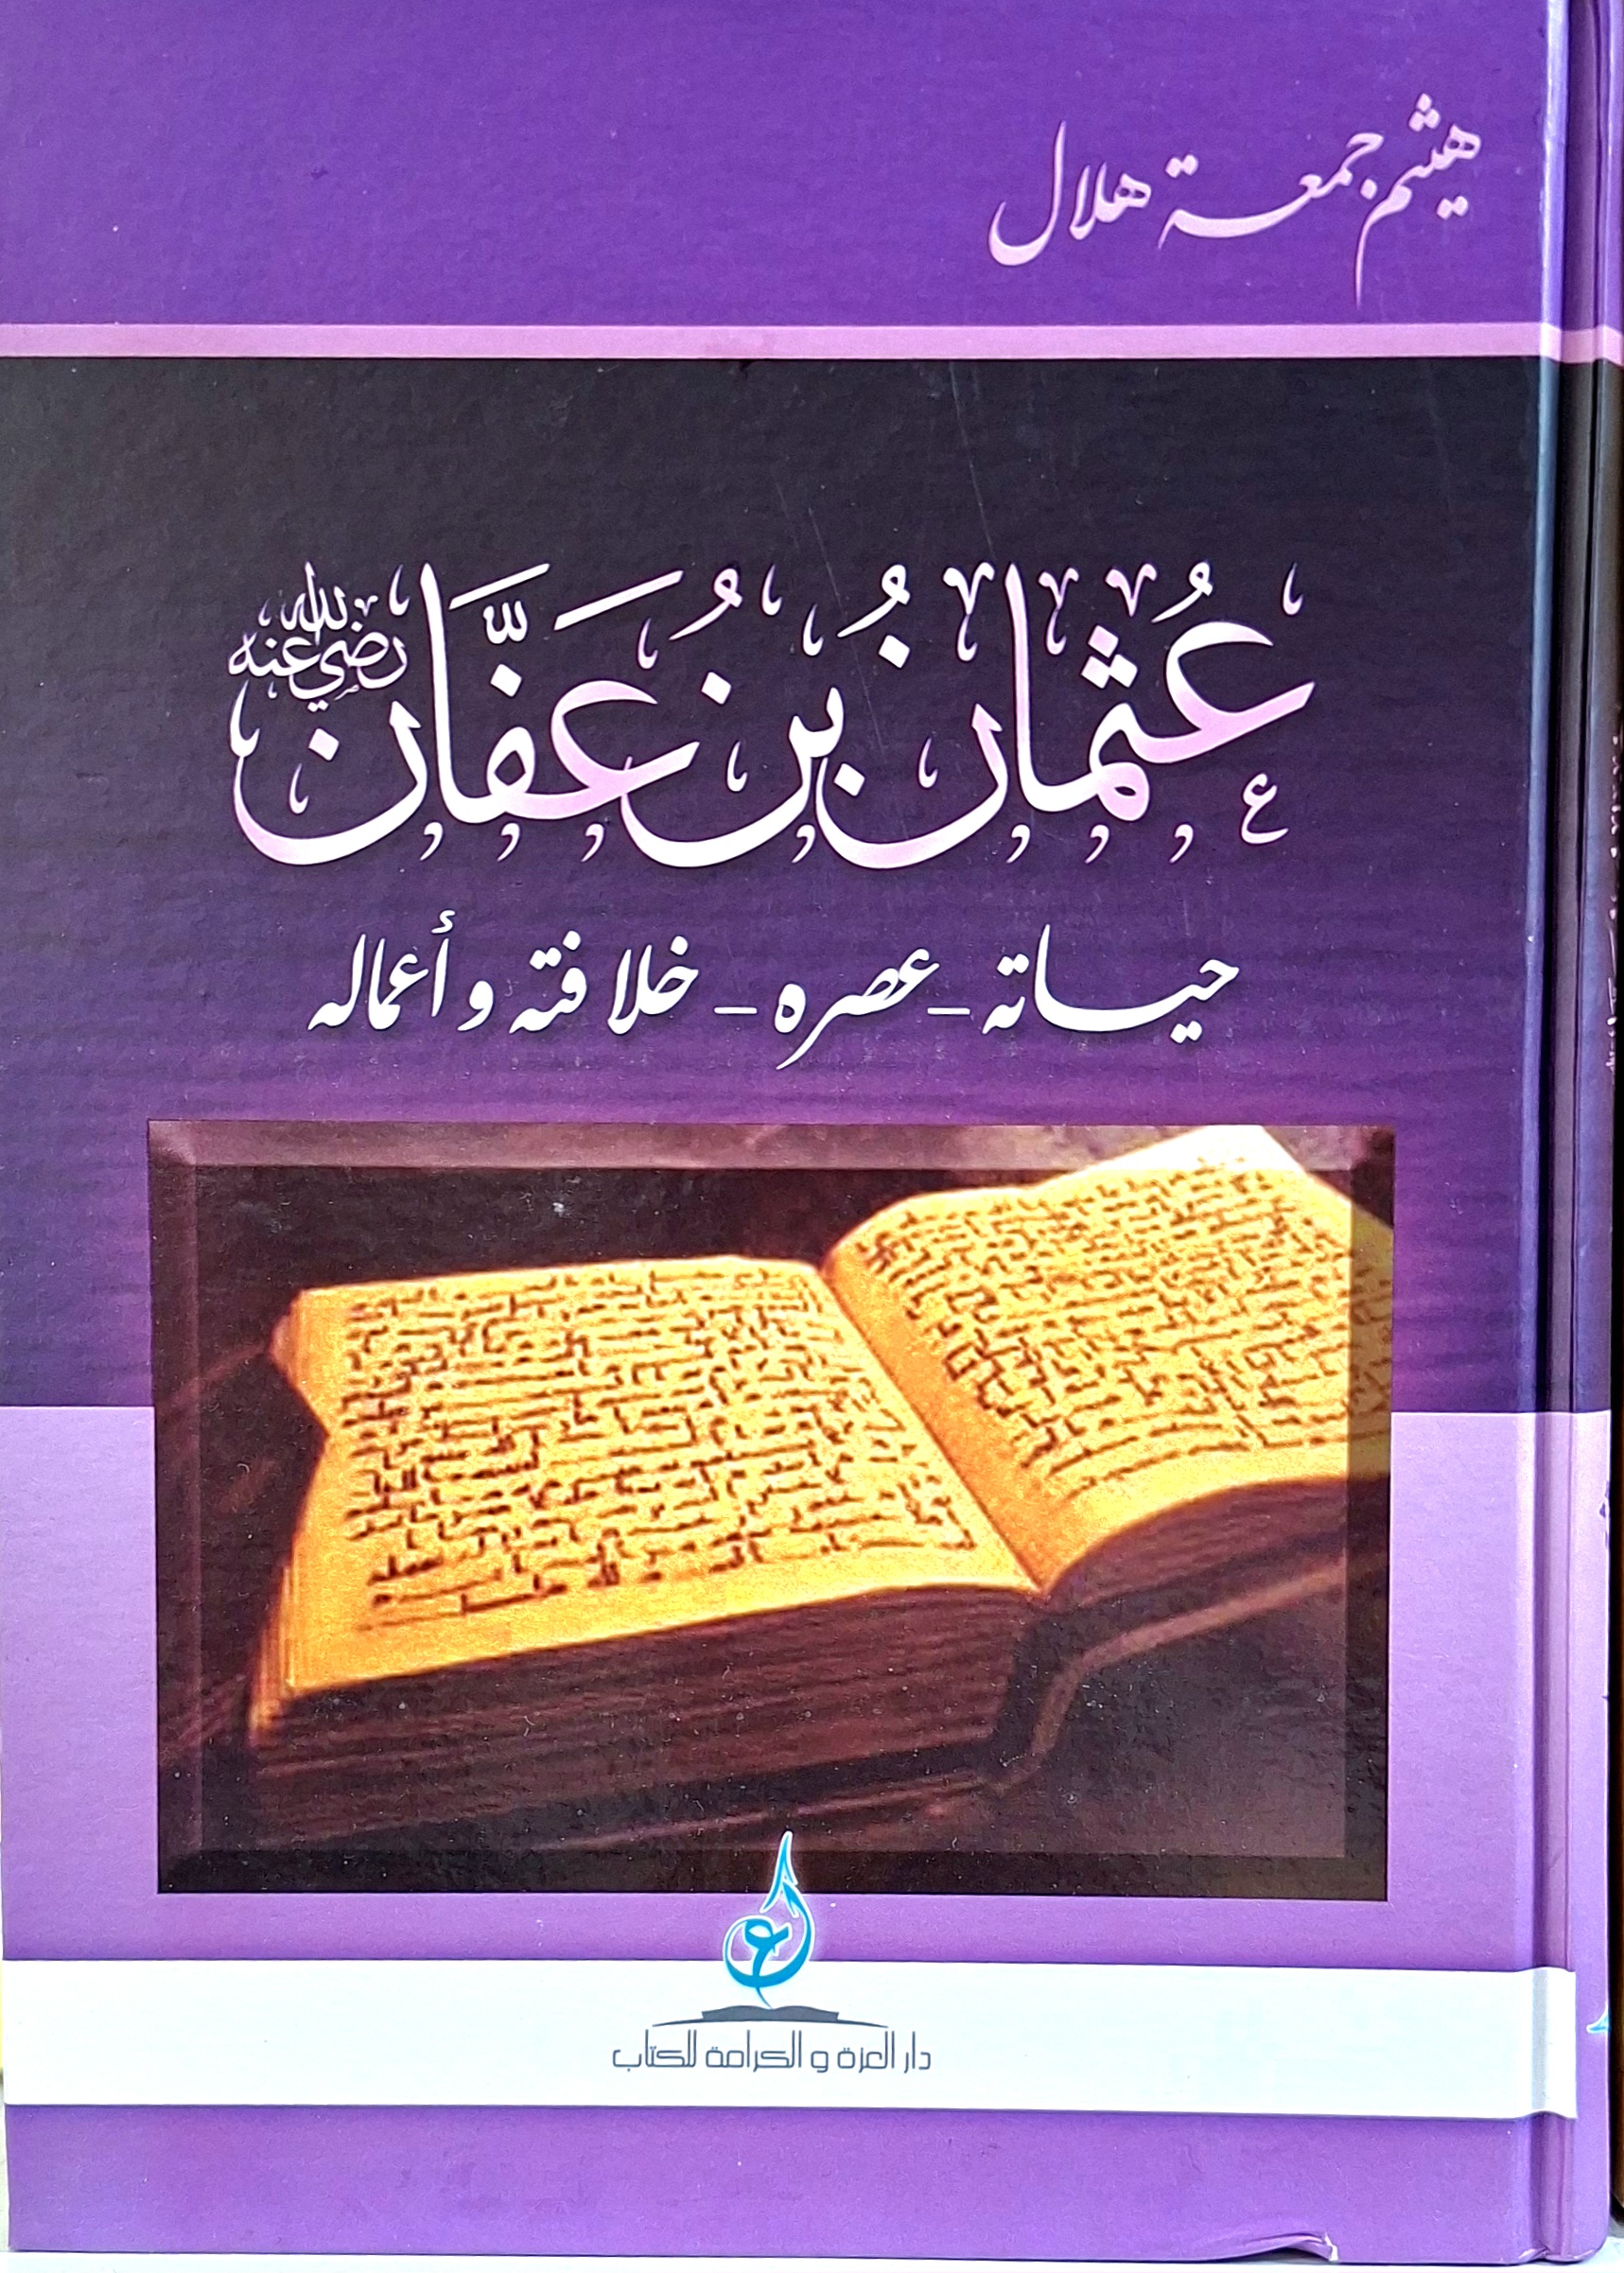 هيثم جمعة هلال
عُثمانُ بنُ عَفَّان رضي الله عنه
حياته - عصره - خلافته وأعماله
ع
دار العزة و الكرامة للكتاب